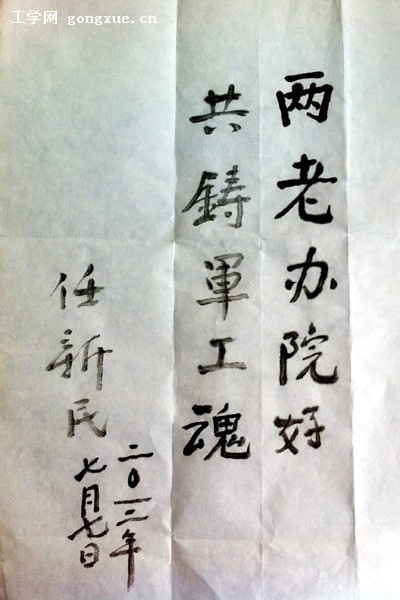 工学网 gongxue.cn
两老办院好
共鑄軍工魂
任新民
二〇一二年
七月七日